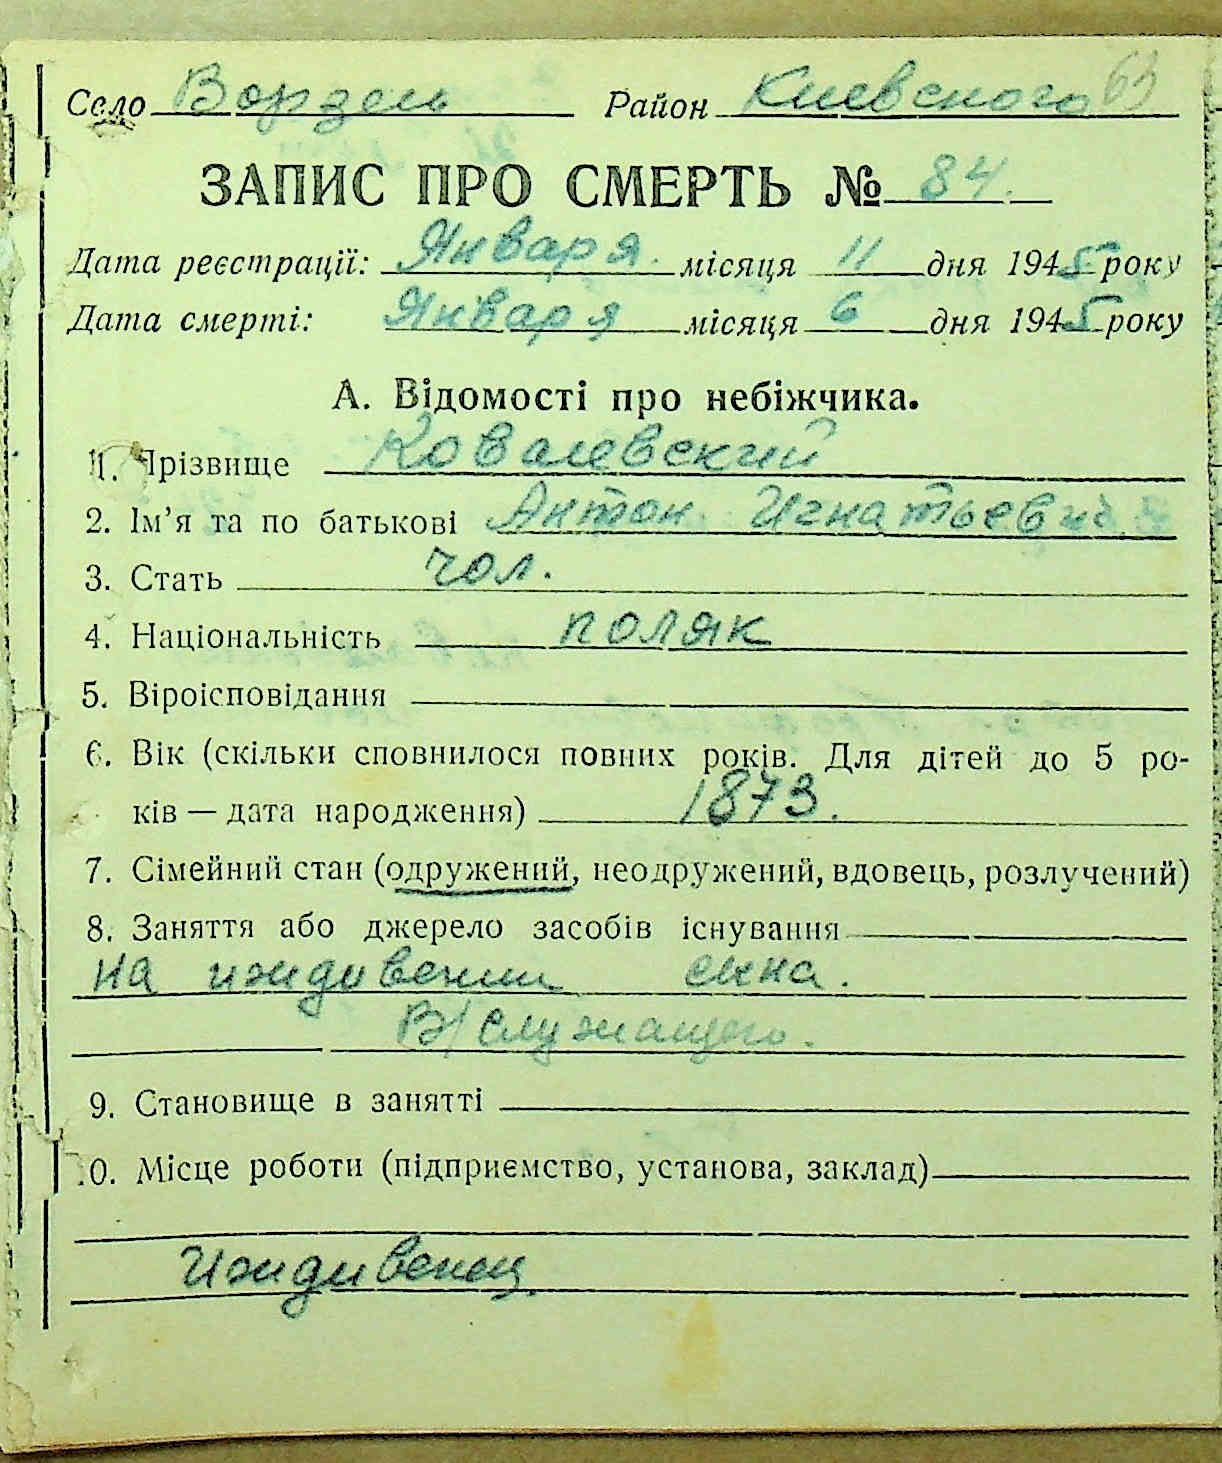 Село Ворзель Район Киевского 63
ЗАПИС ПРО СМЕРТЬ № 84.
Дата реєстрації: Января. місяця 11 дня 1945 року
Дата смерті: Января місяця 6 дня 1945 року
А. Відомості про небіжчика.
1. Прізвище Ковалевский
2. Ім’я та по батькові Антон Игнатьевич
3. Стать чол.
4. Національність поляк
5. Віроісповідання
6. Вік (скільки сповнилося повних років. Для дітей до 5 ро-
ків — дата народження) 1873.
7. Сімейний стан (одружений, неодружений, вдовець, розлучений)
8. Заняття або джерело засобів існування
на иждивении сына.
В/служащего.
9. Становище в занятті
10. Місце роботи (підприємство, установа, заклад)
Иждивенец